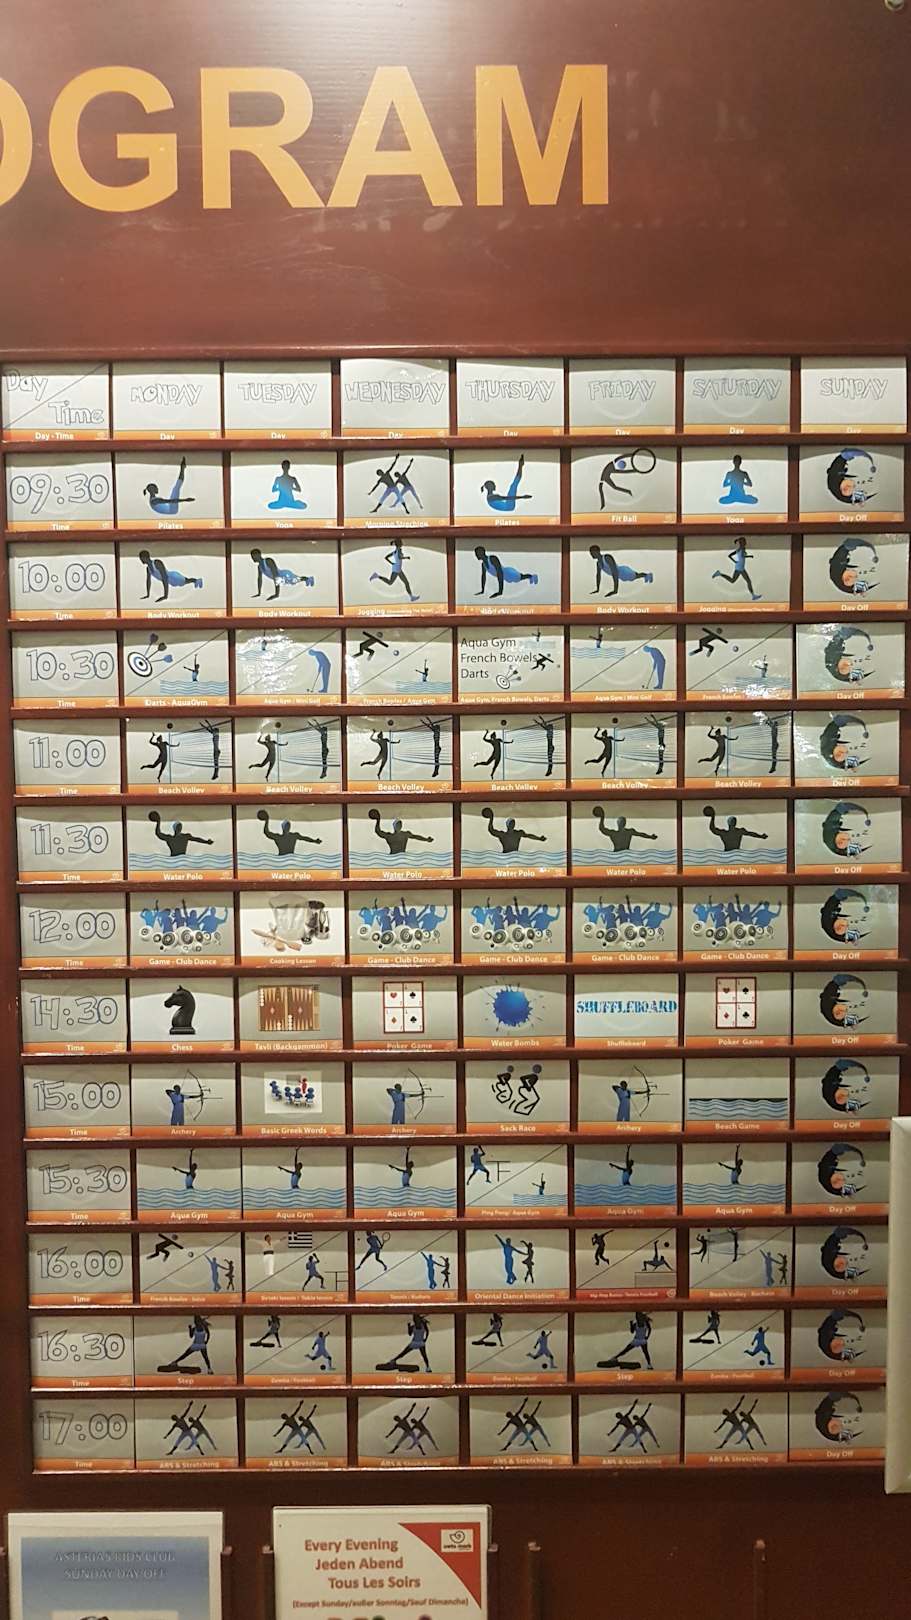 OGRAM
Day Time MONDAY TUESDAY WEDNESDAY THURSDAY FRIDAY SATURDAY SUNDAY
Day - Time Day Day Day Day Day Day
09:30
Time Pilates Yoga Morning Streching Pilates Fit Ball Yoga Day Off
10:00
Time Body Workout Body Workout Jogging Body Workout Body Workout Jogging Day Off
10:30
Aqua Gym
French Bowels
Darts
Time Darts - AquaGym Aqua Gym / Mini Golf French Bowles / Aqua Gym Aqua Gym, French Bowels, Darts Aqua Gym / Mini Golf Day Off
11:00
Time Beach Volley Beach Volley Beach Volley Beach Volley Beach Volley Beach Volley Day Off
11:30
Time Water Polo Water Polo Water Polo Water Polo Water Polo Water Polo Day Off
12:00
Time Game - Club Dance Cooking Lesson Game - Club Dance Game - Club Dance Game - Club Dance Game - Club Dance Day Off
14:30 SHUFFLEBOARD
Time Chess Tavli (Backgammon) Poker Game Water Bombs Shuffleboard Poker Game Day Off
15:00
Time Archery Basic Greek Words Archery Sack Race Archery Beach Game Day Off
15:30
Time Aqua Gym Aqua Gym Aqua Gym Ping Pong/ Aqua Gym Aqua Gym Aqua Gym Day Off
16:00
Time French Bowles - Salsa Oriental Dance Initiation Day Off
16:30
Time Step Zumba / Football Step Zumba / Football Step Zumba / Football Day Off
17:00
Time ABS & Stretching ABS & Stretching ABS & Stretching ABS & Stretching ABS & Stretching ABS & Stretching Day Off
ASTERIAS KIDS CLUB
SUNDAY DAY OFF
Every Evening
Jeden Abend
Tous Les Soirs
(Except Sunday/außer Sonntag/Sauf Dimanche)